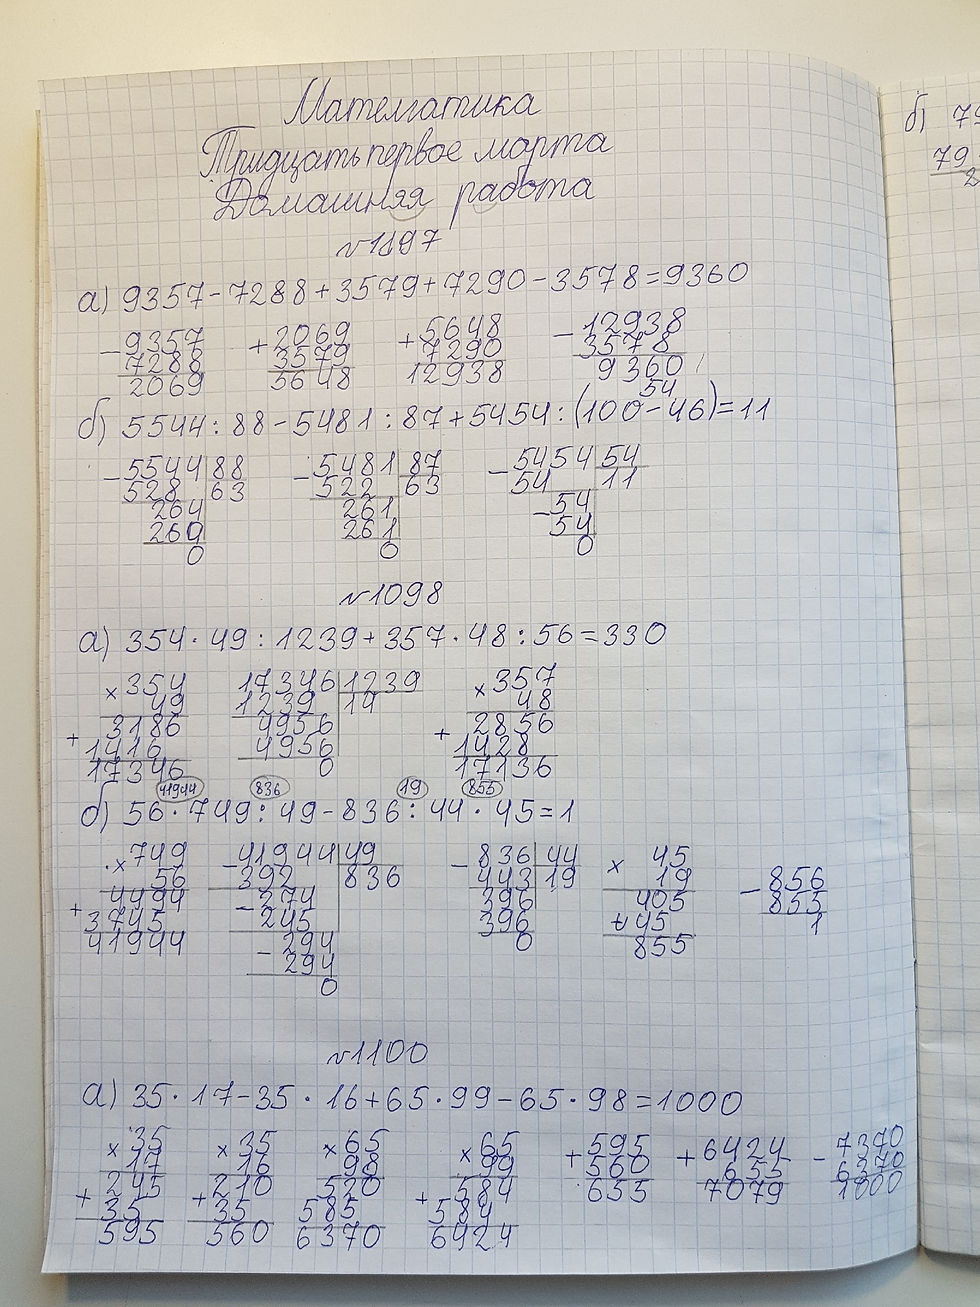 Математика
Тридцать первое марта
Домашняя работа
№1097
а) 9357-7288+3579+7290-3578=9360
-9357 +2069 +5648 -12938
7288 3579 7290 3578
2069 5648 12938 9360
54
б) 5544:88-5481:87+5454:(100-46)=11
-5544 88 -5481 87 -5454 54
528 63 522 63 54 11
264 261 -54
264 261 54
0 0 0
№1098
а) 354·49:1239+357·48:56=330
×354 17346 1239 ×357
49 1239 14 48
3186 4956 2856
+1416 4956 +1428
17346 0 17136
41944 836 19 855
б) 56·749:49-836:44·45=1
×749 -41944 49 -836 44 ×45 -856
56 392 836 443 19 19 855
4494 -274 396 405 1
+3745 245 396 +45
41944 -294 0 855
294
0
№1100
а) 35·17-35·16+65·99-65·98=1000
×35 ×35 ×65 ×65 +595 +6424 -7370
17 16 98 99 560 655 6370
245 210 520 584 655 7079 1000
+35 +35 585 +584
595 560 6370 6424
б) 79
79
2